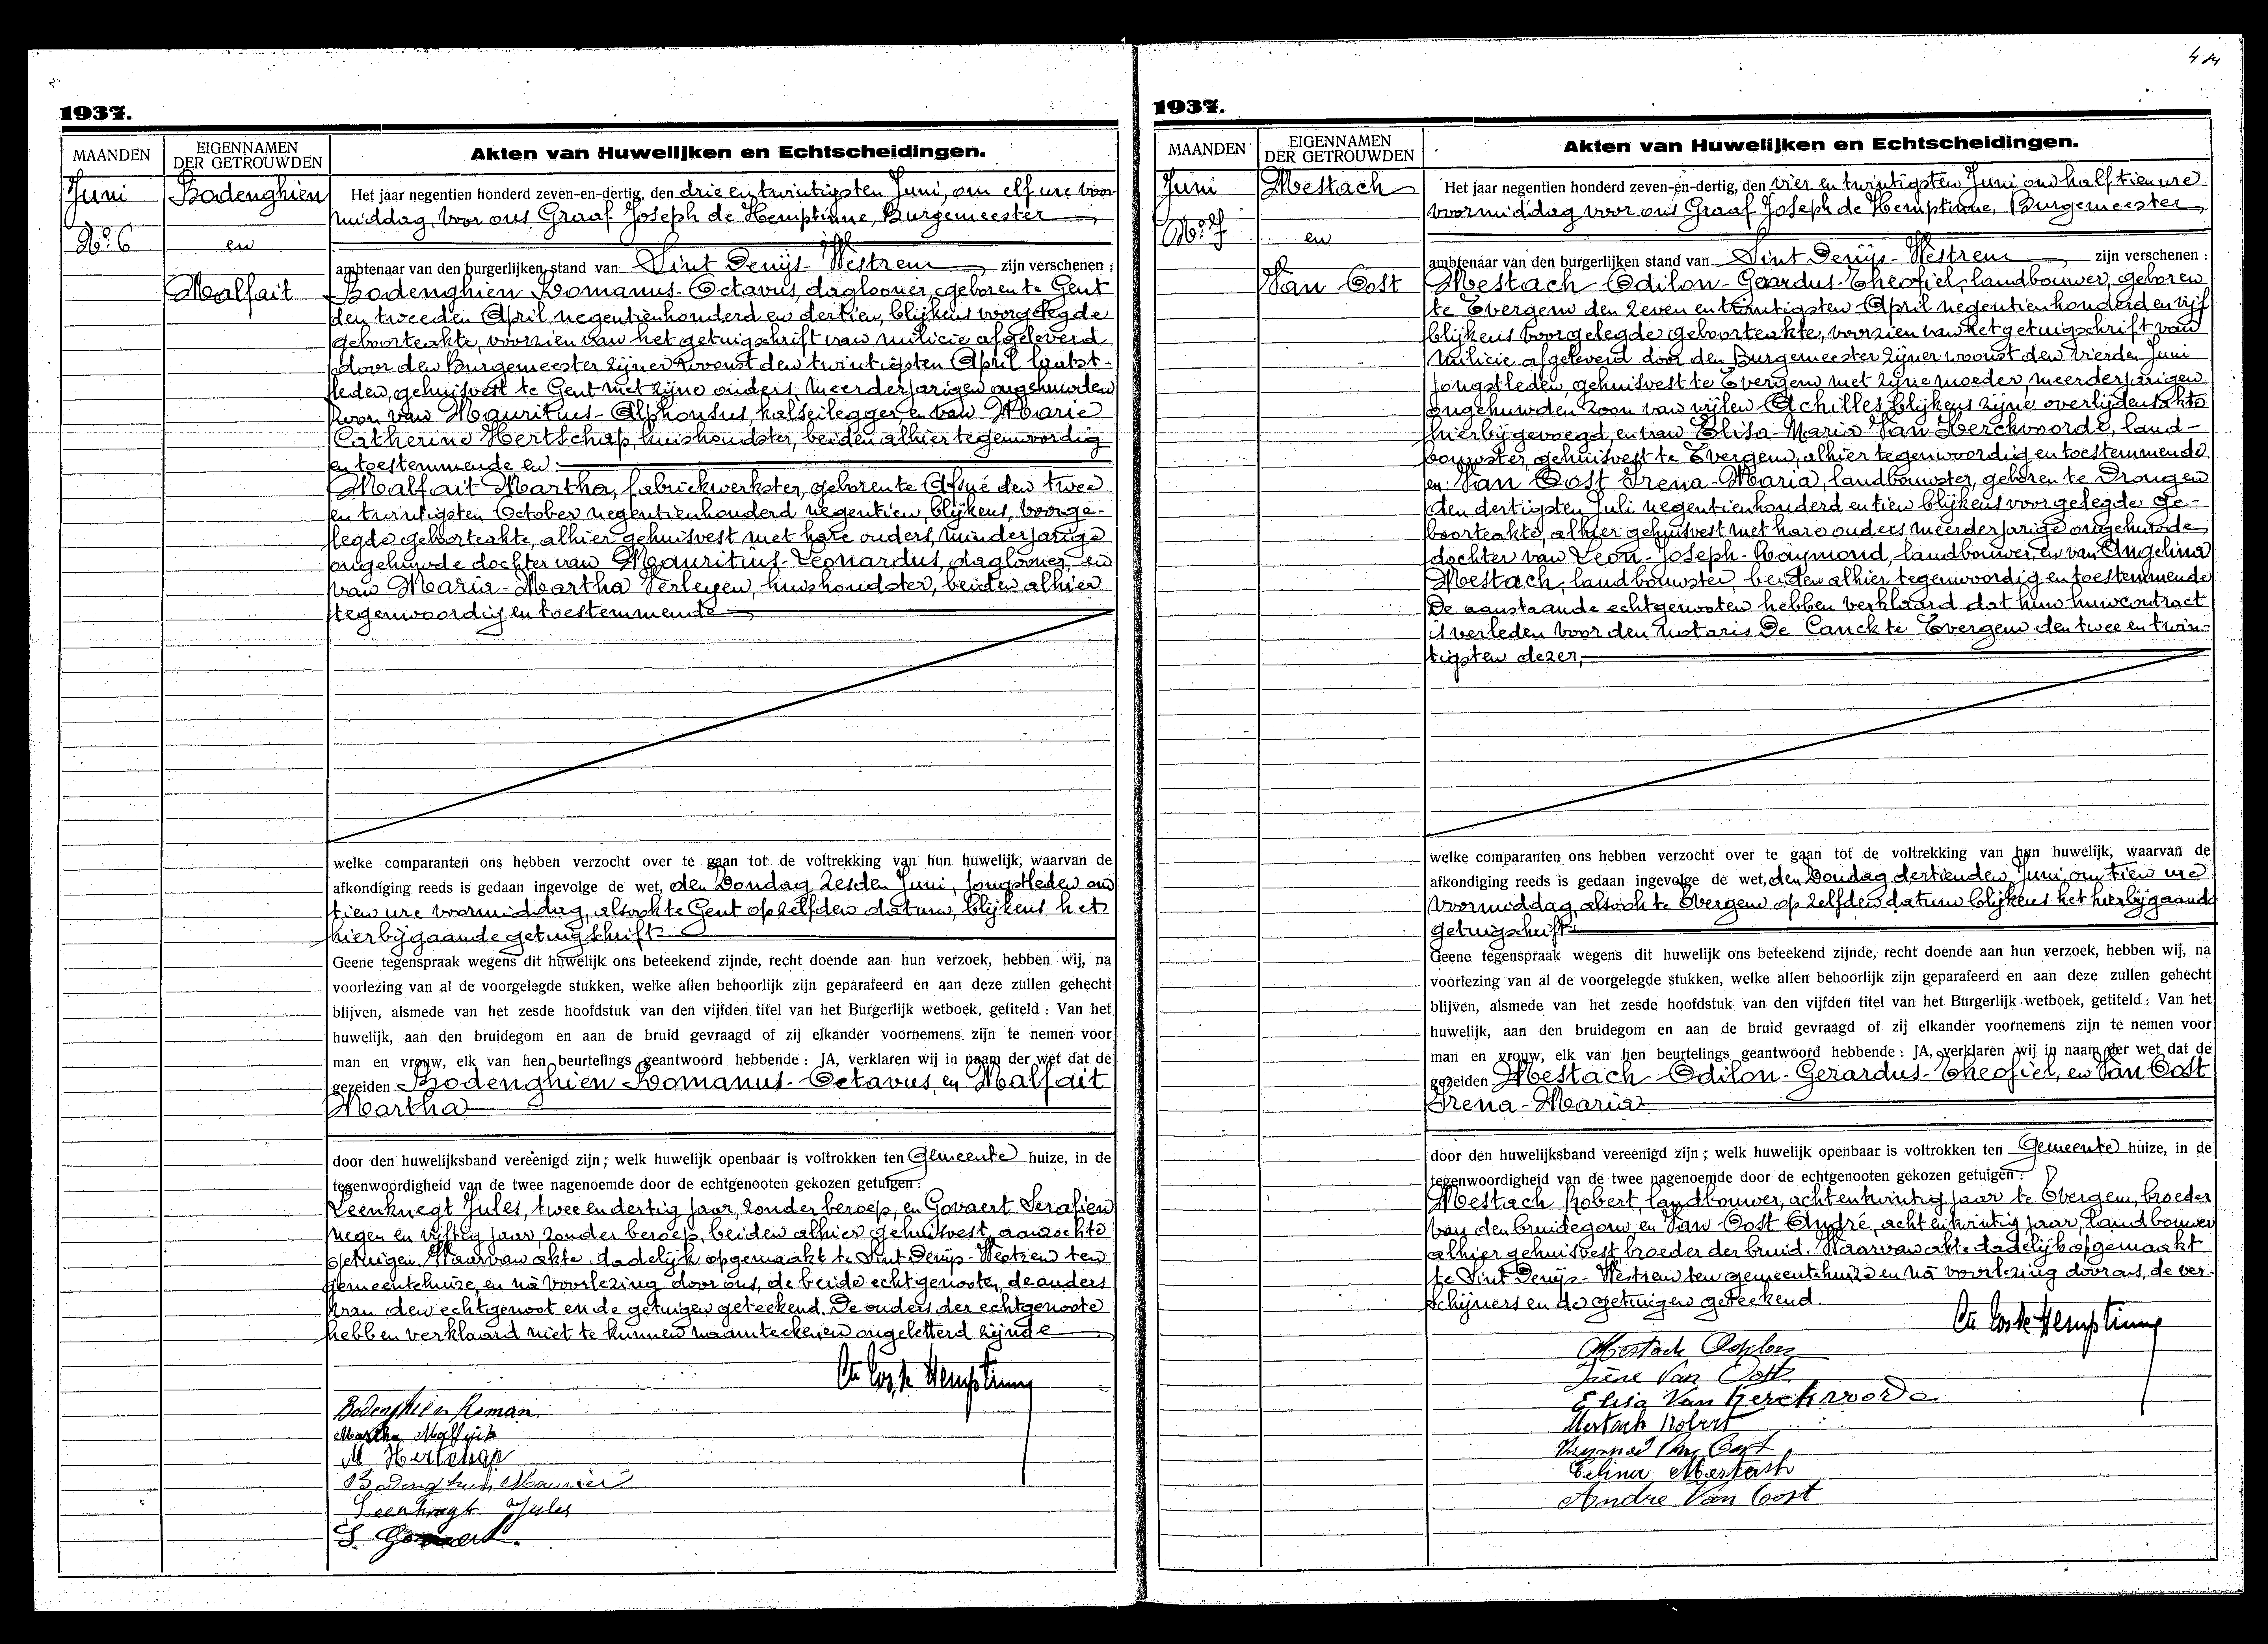 1937.
MAANDEN
EIGENNAMEN
DER GETROUWDEN
Akten van Huwelijken en Echtscheidingen.
Juni
No. 6
Bodenghien
en
Malfait
Het jaar negentien honderd zeven-en-dertig, den drie en twintigsten Juni, om elf ure voor-
middag, voor ons Graaf Joseph de Hemptinne, Burgemeester
ambtenaar van den burgerlijken stand van Sint Denijs-Westrem zijn verschenen :
Bodenghien Romanus-Octavus, daglooner, geboren te Gent
den tweeden April negentienhonderd en dertien, blijkens voorgelegde
geboorteakte, voorzien van het getuigschrift van milicie afgeleverd
door den Burgemeester zijner woonst den twintigsten April laatst-
leden, gehuisvest te Gent met zijne ouders, meerderjarigen ongehuwden
zoon van Mauritius-Alphonsus kalseilegger en van Marie
Catherine Hertschap, huishoudster, beiden alhier tegenwoordig
en toestemmende en:
Malfait Martha, fabriekwerkster, geboren te Afsné den twee
en twintigsten October negentienhonderd negentien, blijkens voorge-
legde geboorteakte, alhier gehuisvest met hare ouders, minderjarige
ongehuwde dochter van Mauritius-Leonardus, daglooner, en
van Maria-Martha Verleyen, huishoudster, beiden alhier
tegenwoordig en toestemmende
welke comparanten ons hebben verzocht over te gaan tot de voltrekking van hun huwelijk, waarvan de
afkondiging reeds is gedaan ingevolge de wet, den Zondag zesden Juni, jongstleden om
tien ure voormiddag, alsook te Gent op zelfden datum, blijkens het
hierbijgaande getuigschrift
Geene tegenspraak wegens dit huwelijk ons beteekend zijnde, recht doende aan hun verzoek, hebben wij, na
voorlezing van al de voorgelegde stukken, welke allen behoorlijk zijn geparafeerd en aan deze zullen gehecht
blijven, alsmede van het zesde hoofdstuk van den vijfden titel van het Burgerlijk wetboek, getiteld : Van het
huwelijk, aan den bruidegom en aan de bruid gevraagd of zij elkander voornemens zijn te nemen voor
man en vrouw, elk van hen beurtelings geantwoord hebbende : JA, verklaren wij in naam der wet dat de
gezeiden Bodenghien Romanus-Octavus, en Malfait
Martha
door den huwelijksband vereenigd zijn ; welk huwelijk openbaar is voltrokken ten Gemeente huize, in de
tegenwoordigheid van de twee nagenoemde door de echtgenooten gekozen getuigen :
Leenknegt Jules, twee en dertig jaar, zonder beroep, en Govaert Serafien
negen en vijftig jaar, zonder beroep, beiden alhier gehuisvest, aanzochte
getuigen. Waarvan akte dadelijk opgemaakt te Sint Denijs-Westrem ten
gemeentehuize, en nà voorlezing door ons, de beide echtgenooten, de ouders
van den echtgenoot en de getuigen geteekend. De ouders der echtgenoote
hebben verklaard niet te kunnen naamteekenen ongeletterd zijnde
Bodenghien Roman
Martha Malfait
M Hertschap
Bodenghien Maurice
Leenknegt Jules
S. Govaert.
1937.
MAANDEN
EIGENNAMEN
DER GETROUWDEN
Akten van Huwelijken en Echtscheidingen.
Juni
No. 7
Mestach
en
Van Oost
Het jaar negentien honderd zeven-en-dertig, den vier en twintigsten Juni om half tien ure
voormiddag voor ons Graaf Joseph de Hemptinne, Burgemeester
ambtenaar van den burgerlijken stand van Sint Denijs-Westrem zijn verschenen :
Mestach Odilon-Geardus-Theofiel, landbouwer, geboren
te Evergem den zeven en twintigsten April negentienhonderd en vijf
blijkens voorgelegde geboorteakte, voorzien van het getuigschrift van
milicie afgeleverd door den Burgemeester zijner woonst den vierden Juni
jongstleden, gehuisvest te Evergem met zijne moeder, meerderjarigen
ongehuwden zoon van wijlen Achilles blijkens zijne overlijdensakte
hierbij gevoegd, en van Elisa-Maria Van Kerckvoorde, land-
bouwster, gehuisvest te Evergem, alhier tegenwoordig en toestemmende
en: Van Oost Irena-Maria, landbouwster, geboren te Drongen
den dertigsten Juli negentienhonderd en tien blijkens voorgelegde ge-
boorteakte, alhier gehuisvest met hare ouders meerderjarige ongehuwde
dochter van Leon-Joseph-Raymond, landbouwer, en van Angelina
Mestach, landbouwster, beiden alhier tegenwoordig en toestemmende
De aanstaande echtgenooten hebben verklaard dat hun huwcontract
is verleden voor den notaris De Canck te Evergem den twee en twin-
tigsten dezer,
welke comparanten ons hebben verzocht over te gaan tot de voltrekking van hun huwelijk, waarvan de
afkondiging reeds is gedaan ingevolge de wet, den Zondag dertienden Juni, om tien ure
voormiddag, alsook te Evergem op zelfden datum blijkens het hierbijgaande
getuigschrift
Geene tegenspraak wegens dit huwelijk ons beteekend zijnde, recht doende aan hun verzoek, hebben wij, na
voorlezing van al de voorgelegde stukken, welke allen behoorlijk zijn geparafeerd en aan deze zullen gehecht
blijven, alsmede van het zesde hoofdstuk van den vijfden titel van het Burgerlijk wetboek, getiteld : Van het
huwelijk, aan den bruidegom en aan de bruid gevraagd of zij elkander voornemens zijn te nemen voor
man en vrouw, elk van hen beurtelings geantwoord hebbende : JA, verklaren wij in naam der wet dat de
gezeiden Mestach Odilon-Gerardus-Theofiel, en Van Oost
Irena-Maria
door den huwelijksband vereenigd zijn ; welk huwelijk openbaar is voltrokken ten Gemeente huize, in de
tegenwoordigheid van de twee nagenoemde door de echtgenooten gekozen getuigen :
Mestach Robert, landbouwer, acht en twintig jaar te Evergem, broeder
van den bruidegom, en Van Oost André, acht en twintig jaar, landbouwer
alhier gehuisvest, broeder der bruid. Waarvan akte dadelijk opgemaakt
te Sint Denijs-Westrem ten gemeentehuize en nà voorlezing door ons, de ver-
schijners en de getuigen geteekend.
Mestach
Irène Van Oost
Elisa Van Kerckvoorde
Mestach Robert
Raymond Van Oost
Mestach
Andre Van Oost